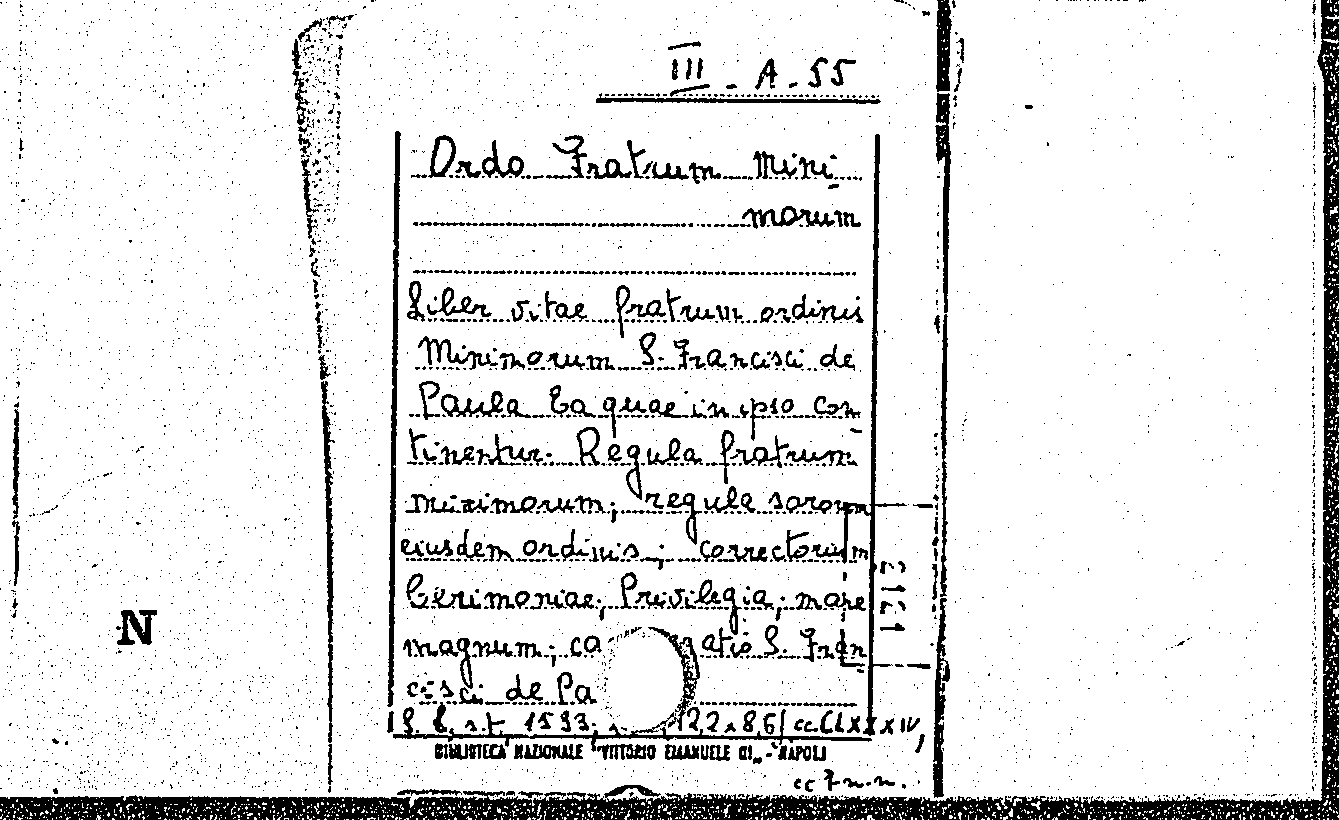 III - A - 55
Ordo Fratrum Mini-
morum
Liber vitae fratrum ordinis
Minimorum S. Francisci de
Paula Ea quae in ipso con-
tinentur. Regula fratrum
minimorum; regule sororum
eiusdem ordinis; correctorium
Cerimoniae; Privilegia; mare
magnum; ca atio S. Fran-
cisci de Pa
N
(122x86) cc. CLXXXIV,
BIBLIOTECA NAZIONALE "VITTORIO EMANUELE III" - NAPOLI
cc 7 n.n.